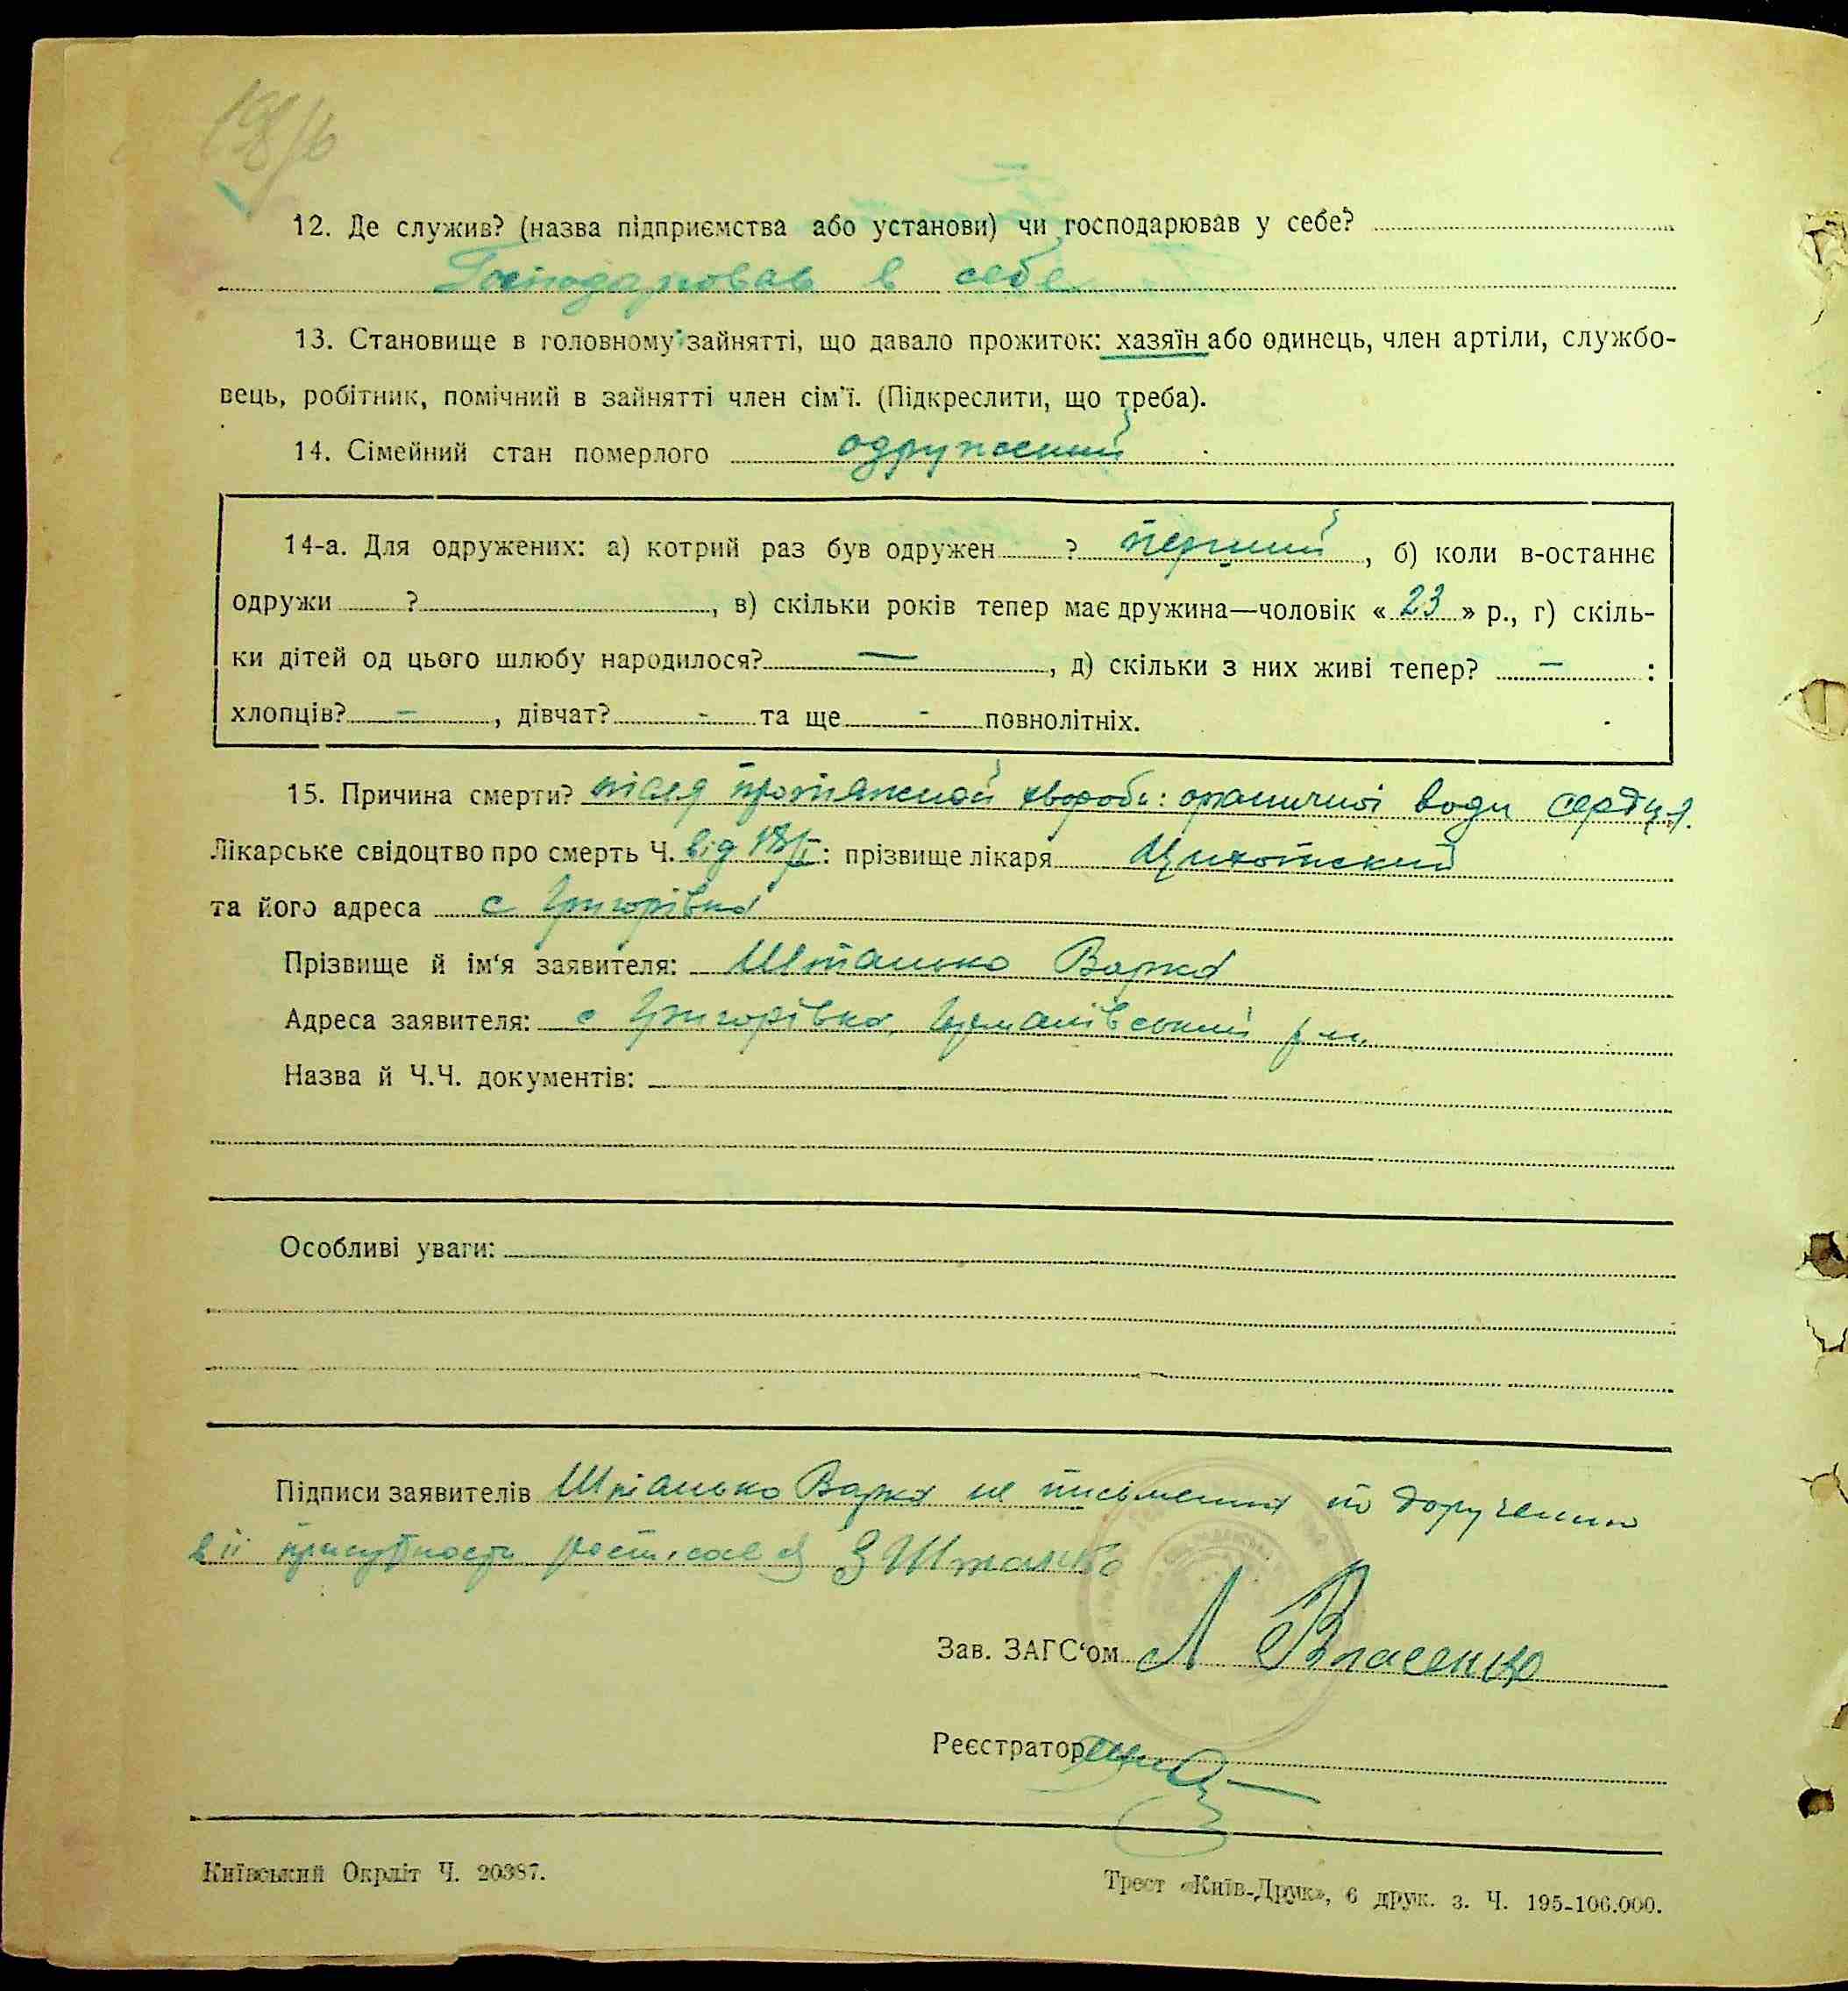 198/6
12. Де служив? (назва підприємства або установи) чи господарював у себе?
Господарював в себе
13. Становище в головному зайнятті, що давало прожиток: хазяїн або одинець, член артіли, службо-
вець, робітник, помічний в зайнятті член сім'ї. (Підкреслити, що треба).
14. Сімейний стан померлого одружений
14-а. Для одружених: а) котрий раз був одружен ? перший, б) коли в-останнє
одружи ? , в) скільки років тепер має дружина—чоловік « 23 » р., г) скіль-
ки дітей од цього шлюбу народилося? — , д) скільки з них живі тепер? — :
хлопців? — , дівчат? - та ще - повнолітніх.
15. Причина смерти? після протяжной хвороби: органичної вади серця.
Лікарське свідоцтво про смерть Ч. від 18/I : прізвище лікаря
та його адреса с Григорівка
Прізвище й ім'я заявителя: Штанько Варка
Адреса заявителя: с Григорівка, р-н.
Назва й Ч.Ч. документів:
Особливі уваги:
Підписи заявителів Штанько Варка не письменна по доручению
в її росписался З Штанько
Зав. ЗАГС'ом Л Власенко
Реєстратор
Київський Окрліт Ч. 20387.
Трест «Київ-Друк», 6 друк. з. Ч. 195-106.000.